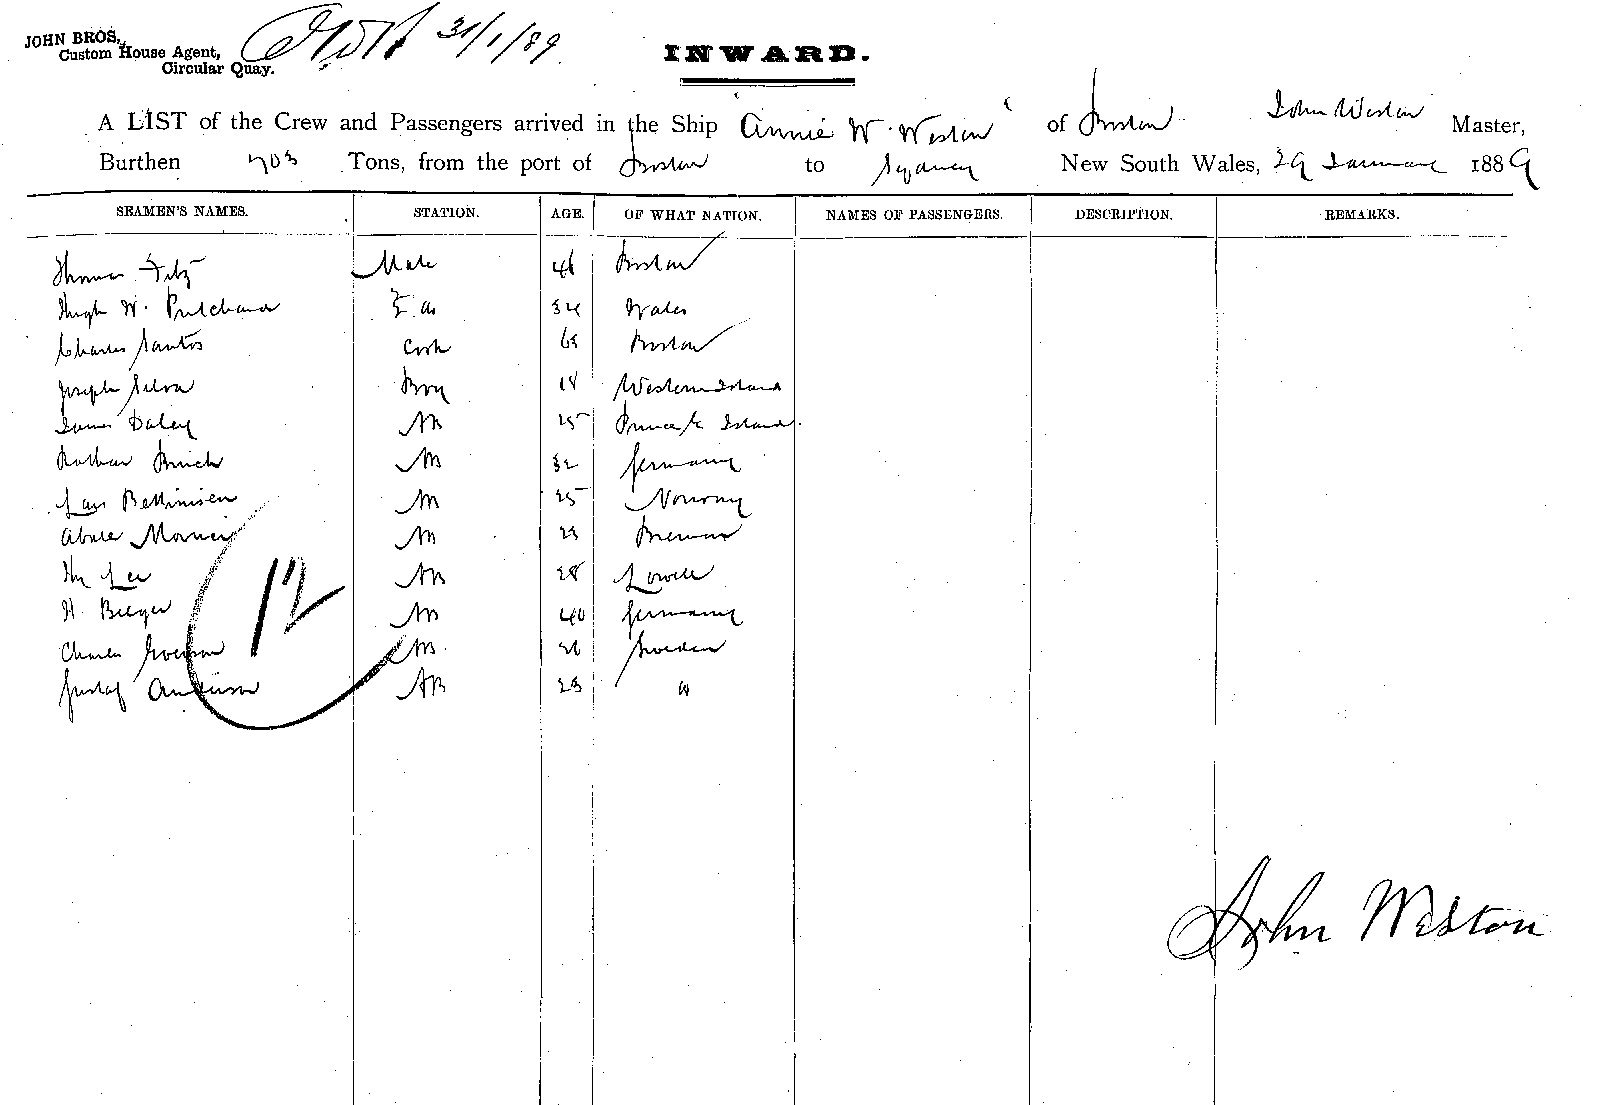 JOHN BROS.,
Custom House Agent,
Circular Quay.
31/1/89
INWARD.
A LIST of the Crew and Passengers arrived in the Ship "Annie W. Weston" of Boston John Weston Master,
Burthen 703 Tons, from the port of Boston to Sydney New South Wales, 29 January 1889
SEAMEN'S NAMES. STATION. AGE. OF WHAT NATION. NAMES OF PASSENGERS. DESCRIPTION. REMARKS.
Thomas Fitz Mate 46 Boston
Hugh W. Pritchard 34 Wales
Charles Santos Cook Boston
Joseph Silva Boy 18 Western Island
James Daley AB 25 Prince E Island
AB 32 Germany
Lars AB 25 Norway
AB 23 Bremen
Hy Lee AB 28 Lowell
H. Berger AB 40 Germany
Charles AB 26 Sweden
Gustaf Anderson AB 23 "
12
John Weston